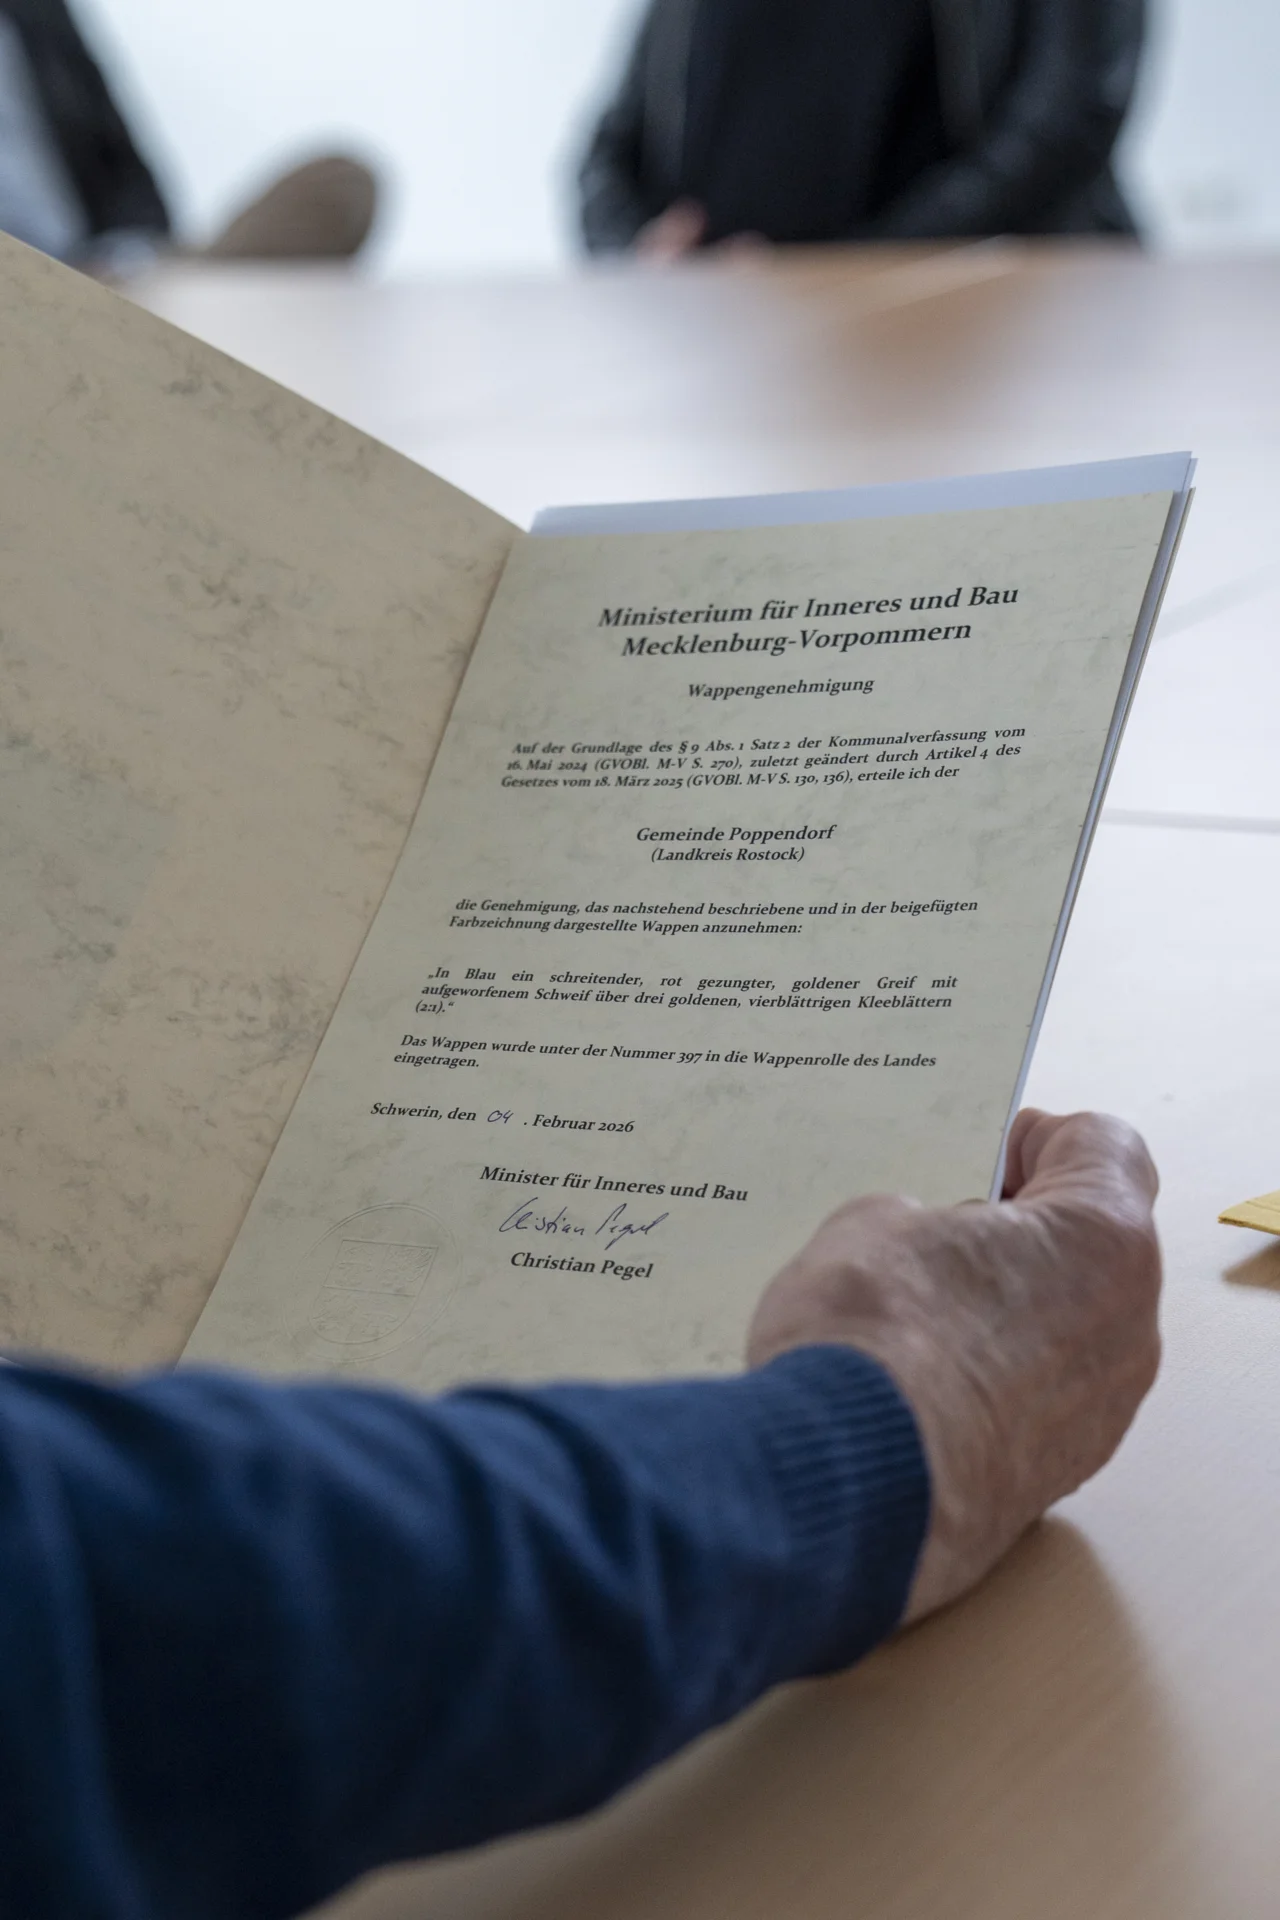 Ministerium für Inneres und Bau
Mecklenburg-Vorpommern
Wappengenehmigung
Auf der Grundlage des § 9 Abs. 1 Satz 2 der Kommunalverfassung vom
16. Mai 2024 (GVOBl. M-V S. 270), zuletzt geändert durch Artikel 4 des
Gesetzes vom 18. März 2025 (GVOBl. M-V S. 130, 136), erteile ich der
Gemeinde Poppendorf
(Landkreis Rostock)
die Genehmigung, das nachstehend beschriebene und in der beigefügten
Farbzeichnung dargestellte Wappen anzunehmen:
„In Blau ein schreitender, rot gezungter, goldener Greif mit
aufgeworfenem Schweif über drei goldenen, vierblättrigen Kleeblättern
(2:1).“
Das Wappen wurde unter der Nummer 397 in die Wappenrolle des Landes
eingetragen.
Schwerin, den 04 . Februar 2026
Minister für Inneres und Bau
Christian Pegel
Christian Pegel